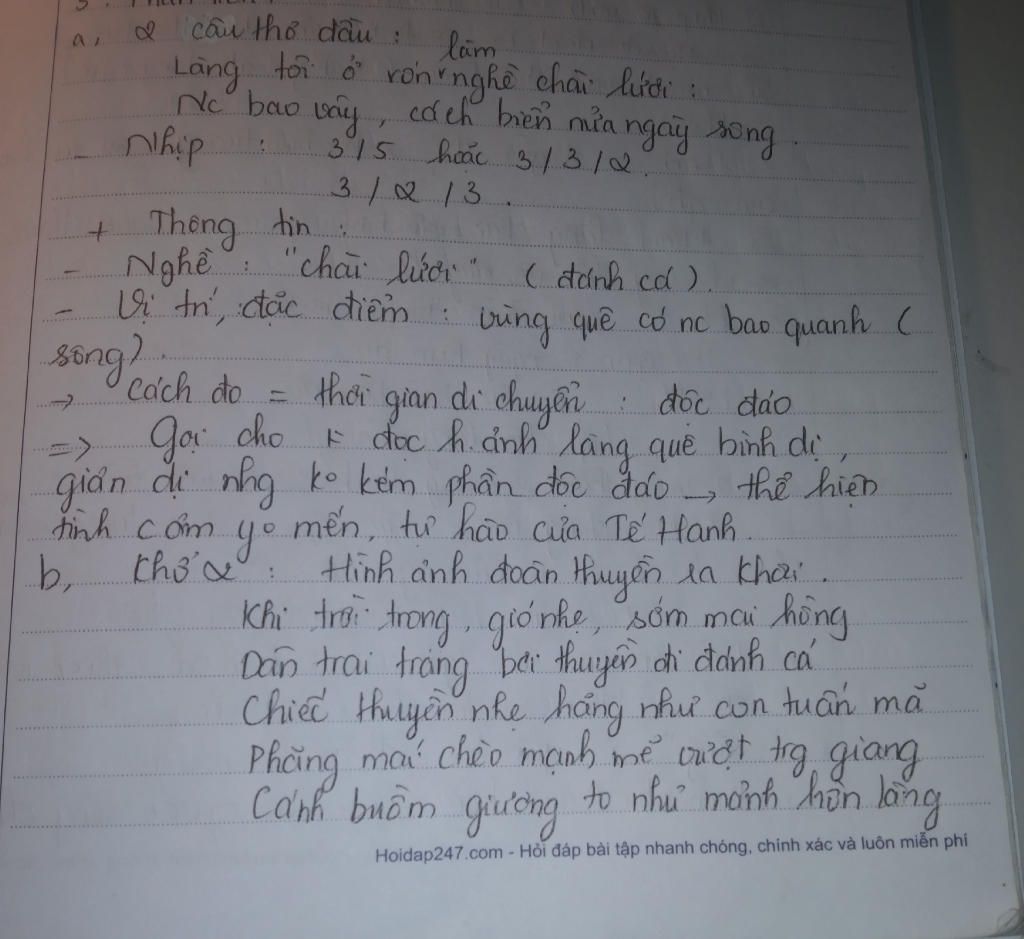 a, 2 câu thơ đầu :
làm
Làng tôi ở vốn nghề chài lưới :
Nc bao vây, cách biển nửa ngày sông.
- Nhịp : 3/5 hoặc 3/3/2.
3/2/3.
+ Thông tin :
- Nghề : "chài lưới" (đánh cá).
- Vị trí, đặc điểm : vùng quê có nc bao quanh (
sông).
→ cách đo = thời gian di chuyển : độc đáo
=> Gợi cho đọc h.ảnh làng quê bình dị,
giản dị nhg ko kém phần độc đáo → thể hiện
tình cảm yo mến, tự hào của Tế Hanh.
b, Khổ 2 : Hình ảnh đoàn thuyền ra khơi.
Khi trời trong, gió nhẹ, sớm mai hồng
Dân trai tráng bơi thuyền đi đánh cá
Chiếc thuyền nhẹ hăng như con tuấn mã
Phăng mái chèo mạnh mẽ vượt trg giang
Cánh buồm giương to như mảnh hồn làng
Hoidap247.com - Hỏi đáp bài tập nhanh chóng, chính xác và luôn miễn phí